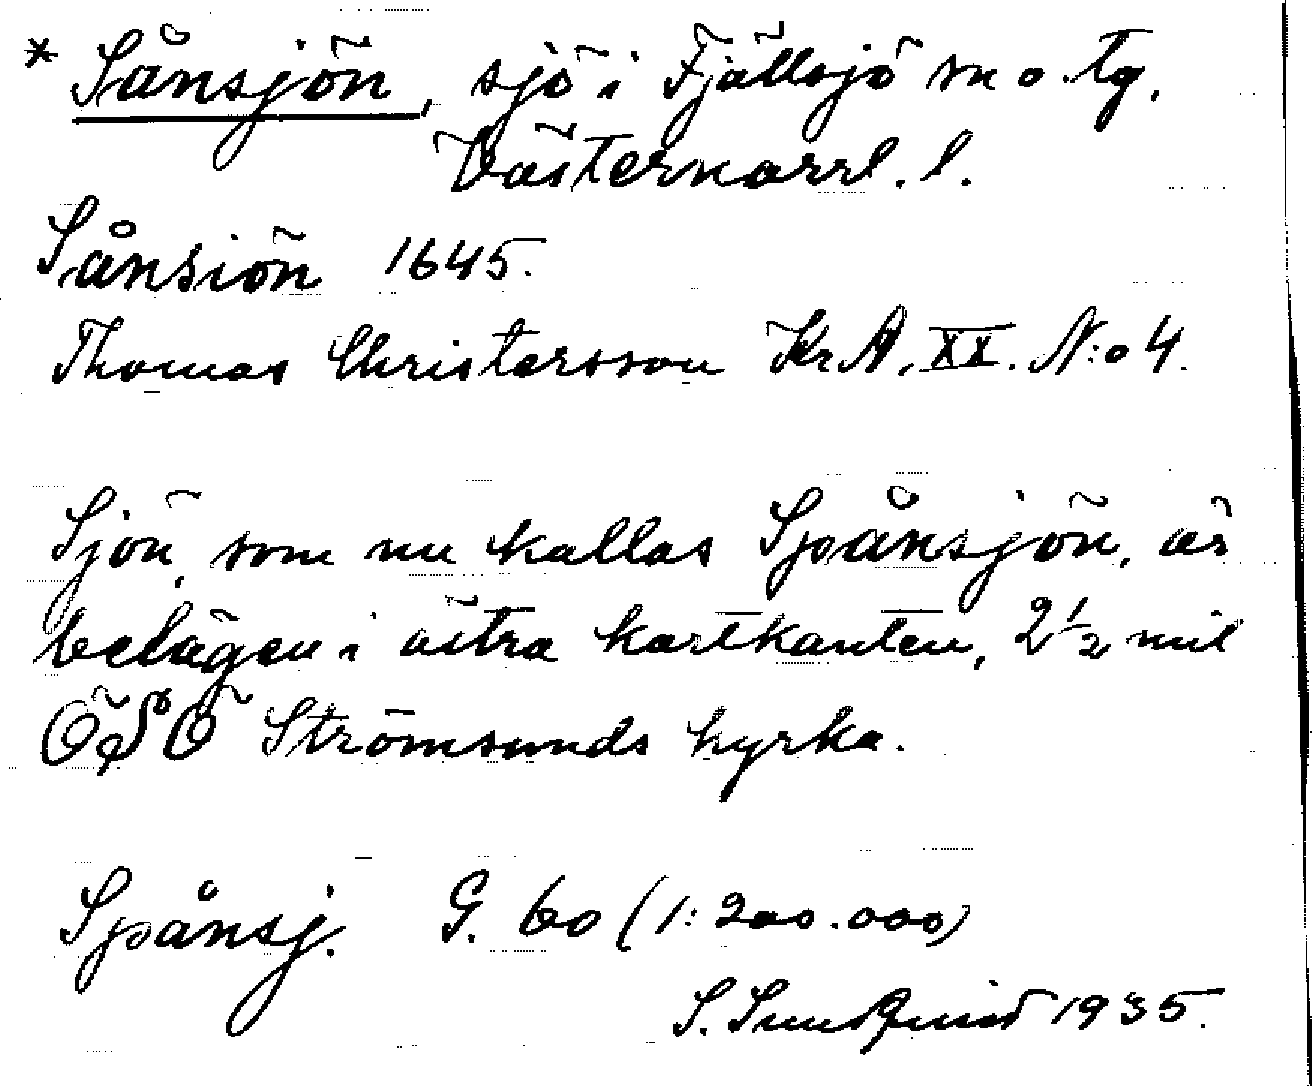 * Sånsjön, sjö i Fjällsjö sn o tg,
Västernorrl. l.
Sånsiön 1645.
Thomas Christersson Kr A, XX. N:o 4.
Sjön, som nu kallas Spånsjön, är
belägen i östra kartkanten, 2 1/2 mil
ÖSÖ Strömsunds kyrka.
Spånsj. G. 60 (1:200.000)
S. Sundquist 1935.